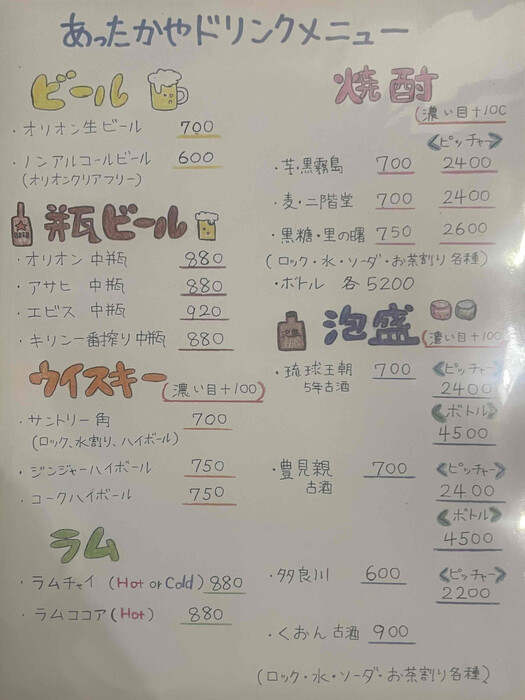 あったかやドリンクメニュー
ビール
・オリオン生ビール 700
・ノンアルコールビール 600
(オリオンクリアフリー)
瓶ビール
・オリオン 中瓶 880
・アサヒ 中瓶 880
・エビス 中瓶 920
・キリン一番搾り中瓶 880
ウイスキー (濃い目+100)
・サントリー角 700
(ロック、水割り、ハイボール)
・ジンジャーハイボール 750
・コークハイボール 750
ラム
・ラムチャイ (Hot or Cold) 880
・ラムココア (Hot) 880
焼酎
(濃い目+100
<ピッチャー>
・芋・黒霧島 700 2400
・麦・二階堂 700 2400
・黒糖・里の曙 750 2600
(ロック・水・ソーダ・お茶割り各種)
・ボトル 各5200
泡盛 (濃い目+100
・琉球王朝 700 《ピッチャー》
5年古酒 2400
《ボトル》
4500
・豊見親 700 《ピッチャー》
古酒 2400
《ボトル》
4500
・多良川 600 《ピッチャー》
2200
・くおん古酒 900
(ロック・水・ソーダ・お茶割り各種)